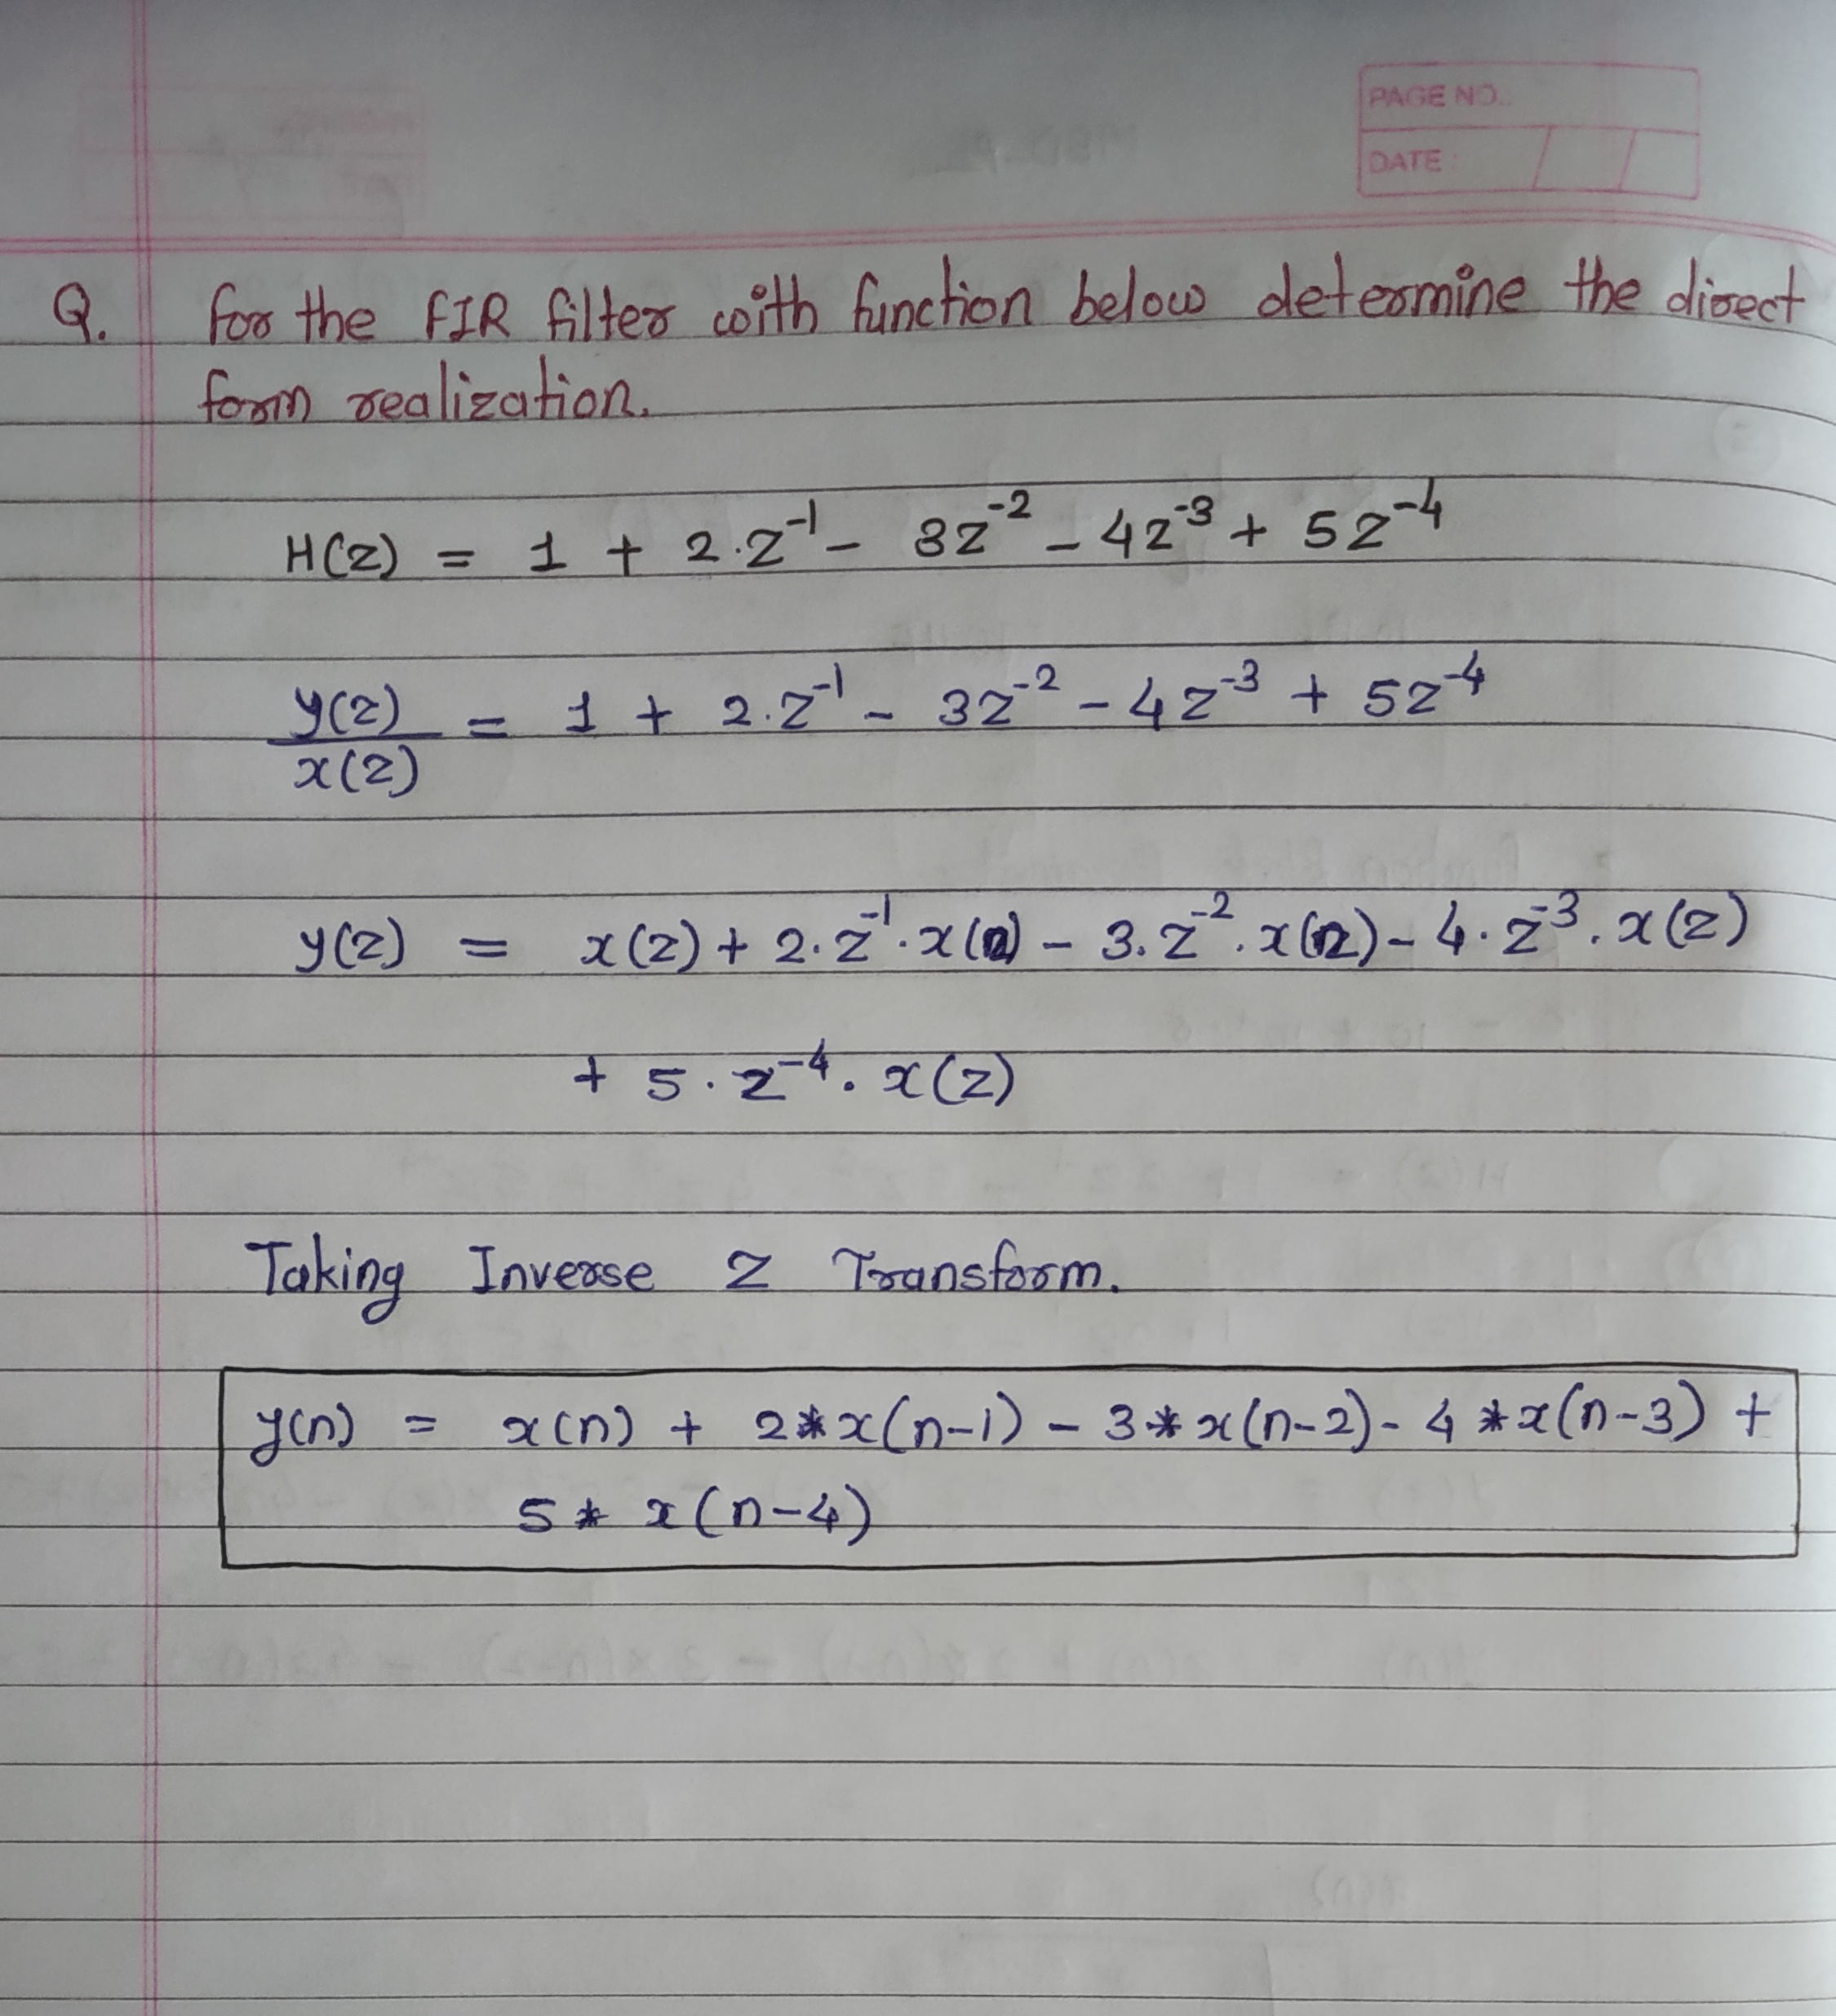 PAGE NO.
DATE :
Q. for the FIR filter with function below determine the direct
form realization.
H(z) = 1 + 2.z⁻¹ - 3z⁻² - 4z⁻³ + 5z⁻⁴
y(z)
x(z)
= 1 + 2.z⁻¹ - 3z⁻² - 4z⁻³ + 5z⁻⁴
y(z) = x(z) + 2.z⁻¹.x(z) - 3.z⁻².x(z) - 4.z⁻³.x(z)
+ 5.z⁻⁴.x(z)
Taking Inverse Z Transform.
y(n) = x(n) + 2*x(n-1) - 3*x(n-2) - 4*x(n-3) +
5* x(n-4)